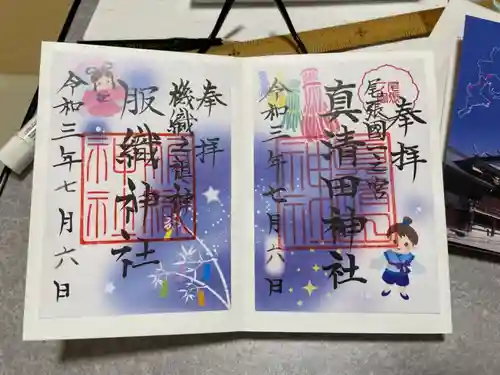 奉拝
尾張國一之宮
真清田神社
令和三年七月六日
奉拝
機織之祖神
服織神社
令和三年七月六日